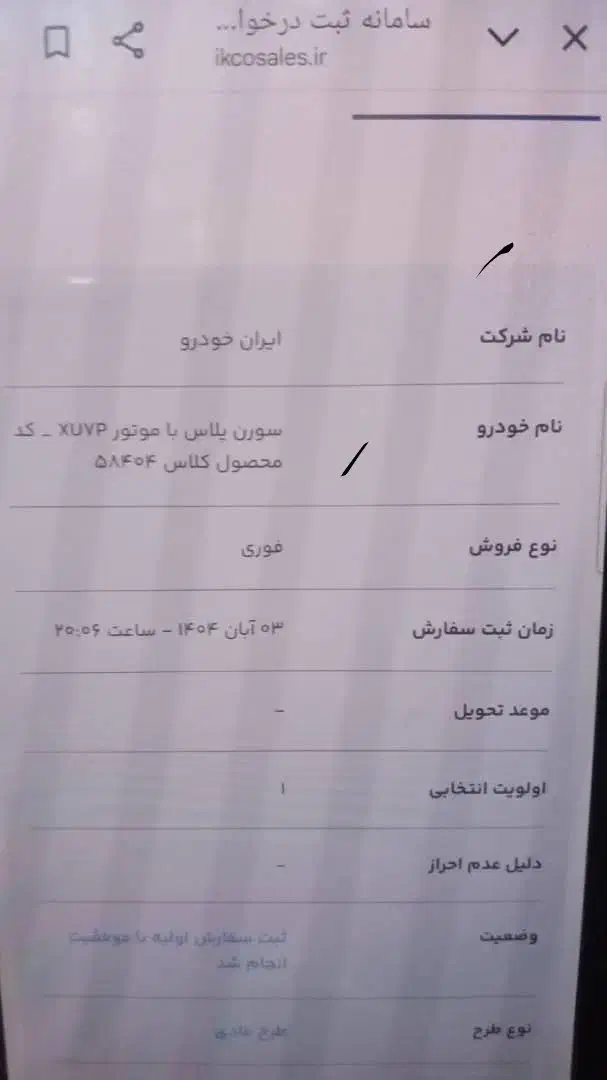 سامانه ثبت درخوا...
ikcosales.ir
نام شرکت ایران خودرو
نام خودرو سورن پلاس با موتور XU7P _ کد
محصول کلاس ۵۸۴۰۴
نوع فروش فوری
زمان ثبت سفارش ۰۳ آبان ۱۴۰۴ - ساعت ۲۰:۰۶
موعد تحویل -
اولویت انتخابی ۱
دلیل عدم احراز -
وضعیت ثبت سفارش اولیه با موفقیت
انجام شد
نوع طرح طرح عادی